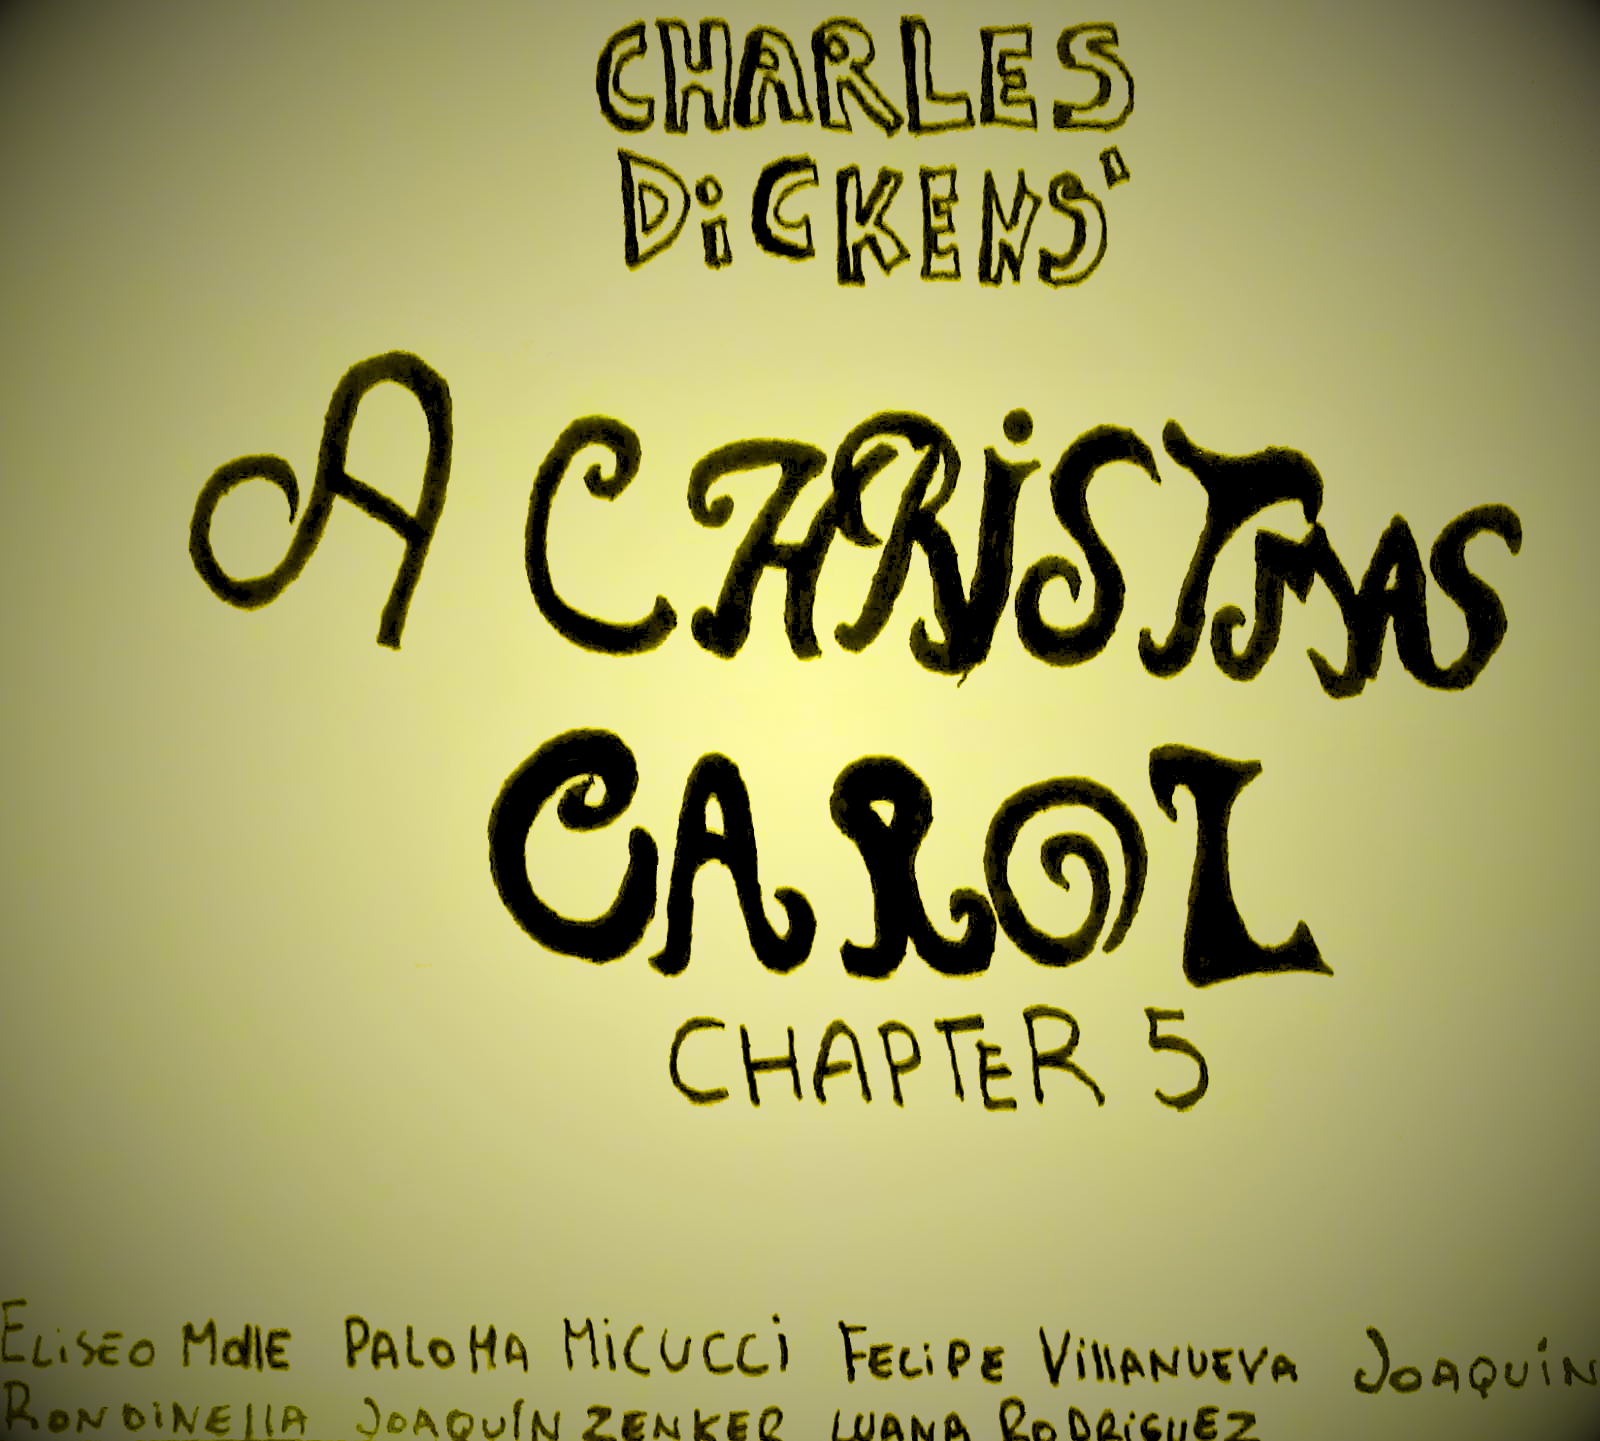 CHARLES
DiCKENS'
A CHRiSTMAS
CAROL
CHAPTER 5
ELiSEO MollE PALOMA MiCUCCi FELiPE VillANUEVA JOAQUÍN
RONDiNEllA JOAQUÍN ZENKER LUANA RODRiGUEZ